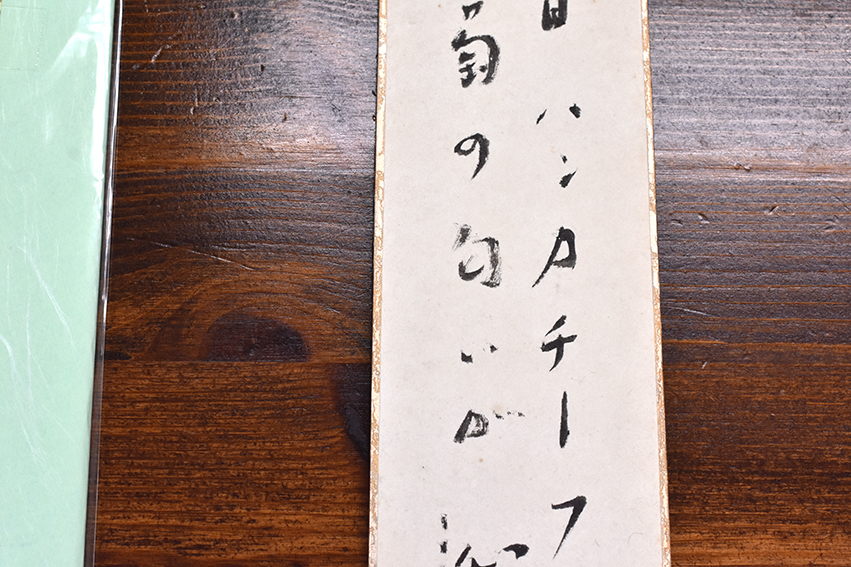 ハンカチーフ
菊の匂いが